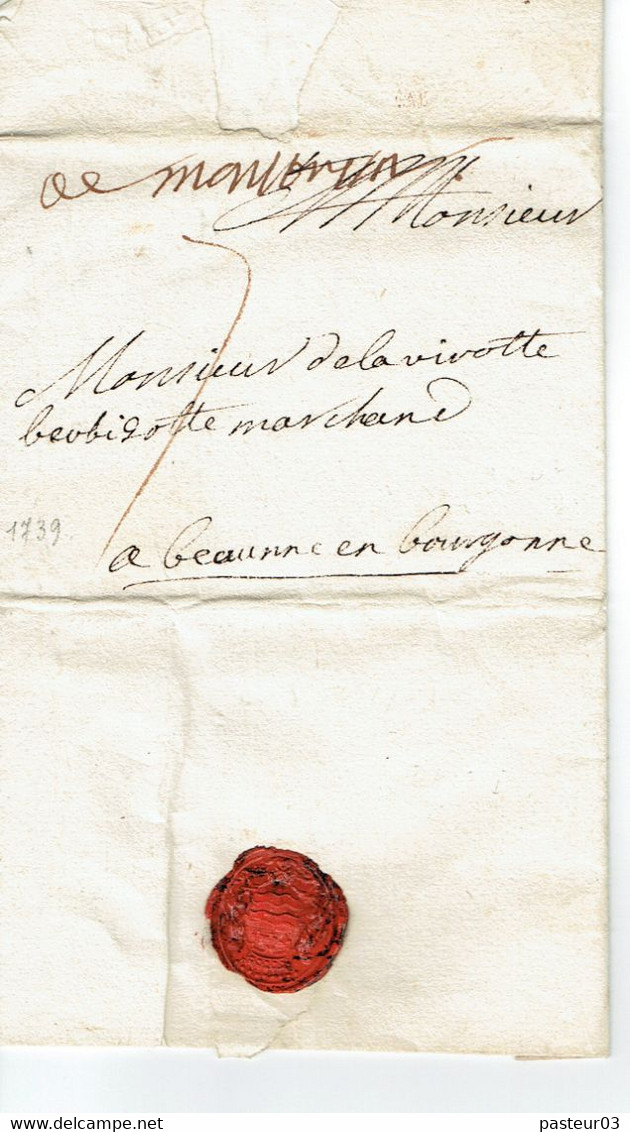 de
Monsieur
7
Monsieur delavivotte
berbizotte marchand
1739.
a beaunne en bourgonne
delcampe.net
pasteur03